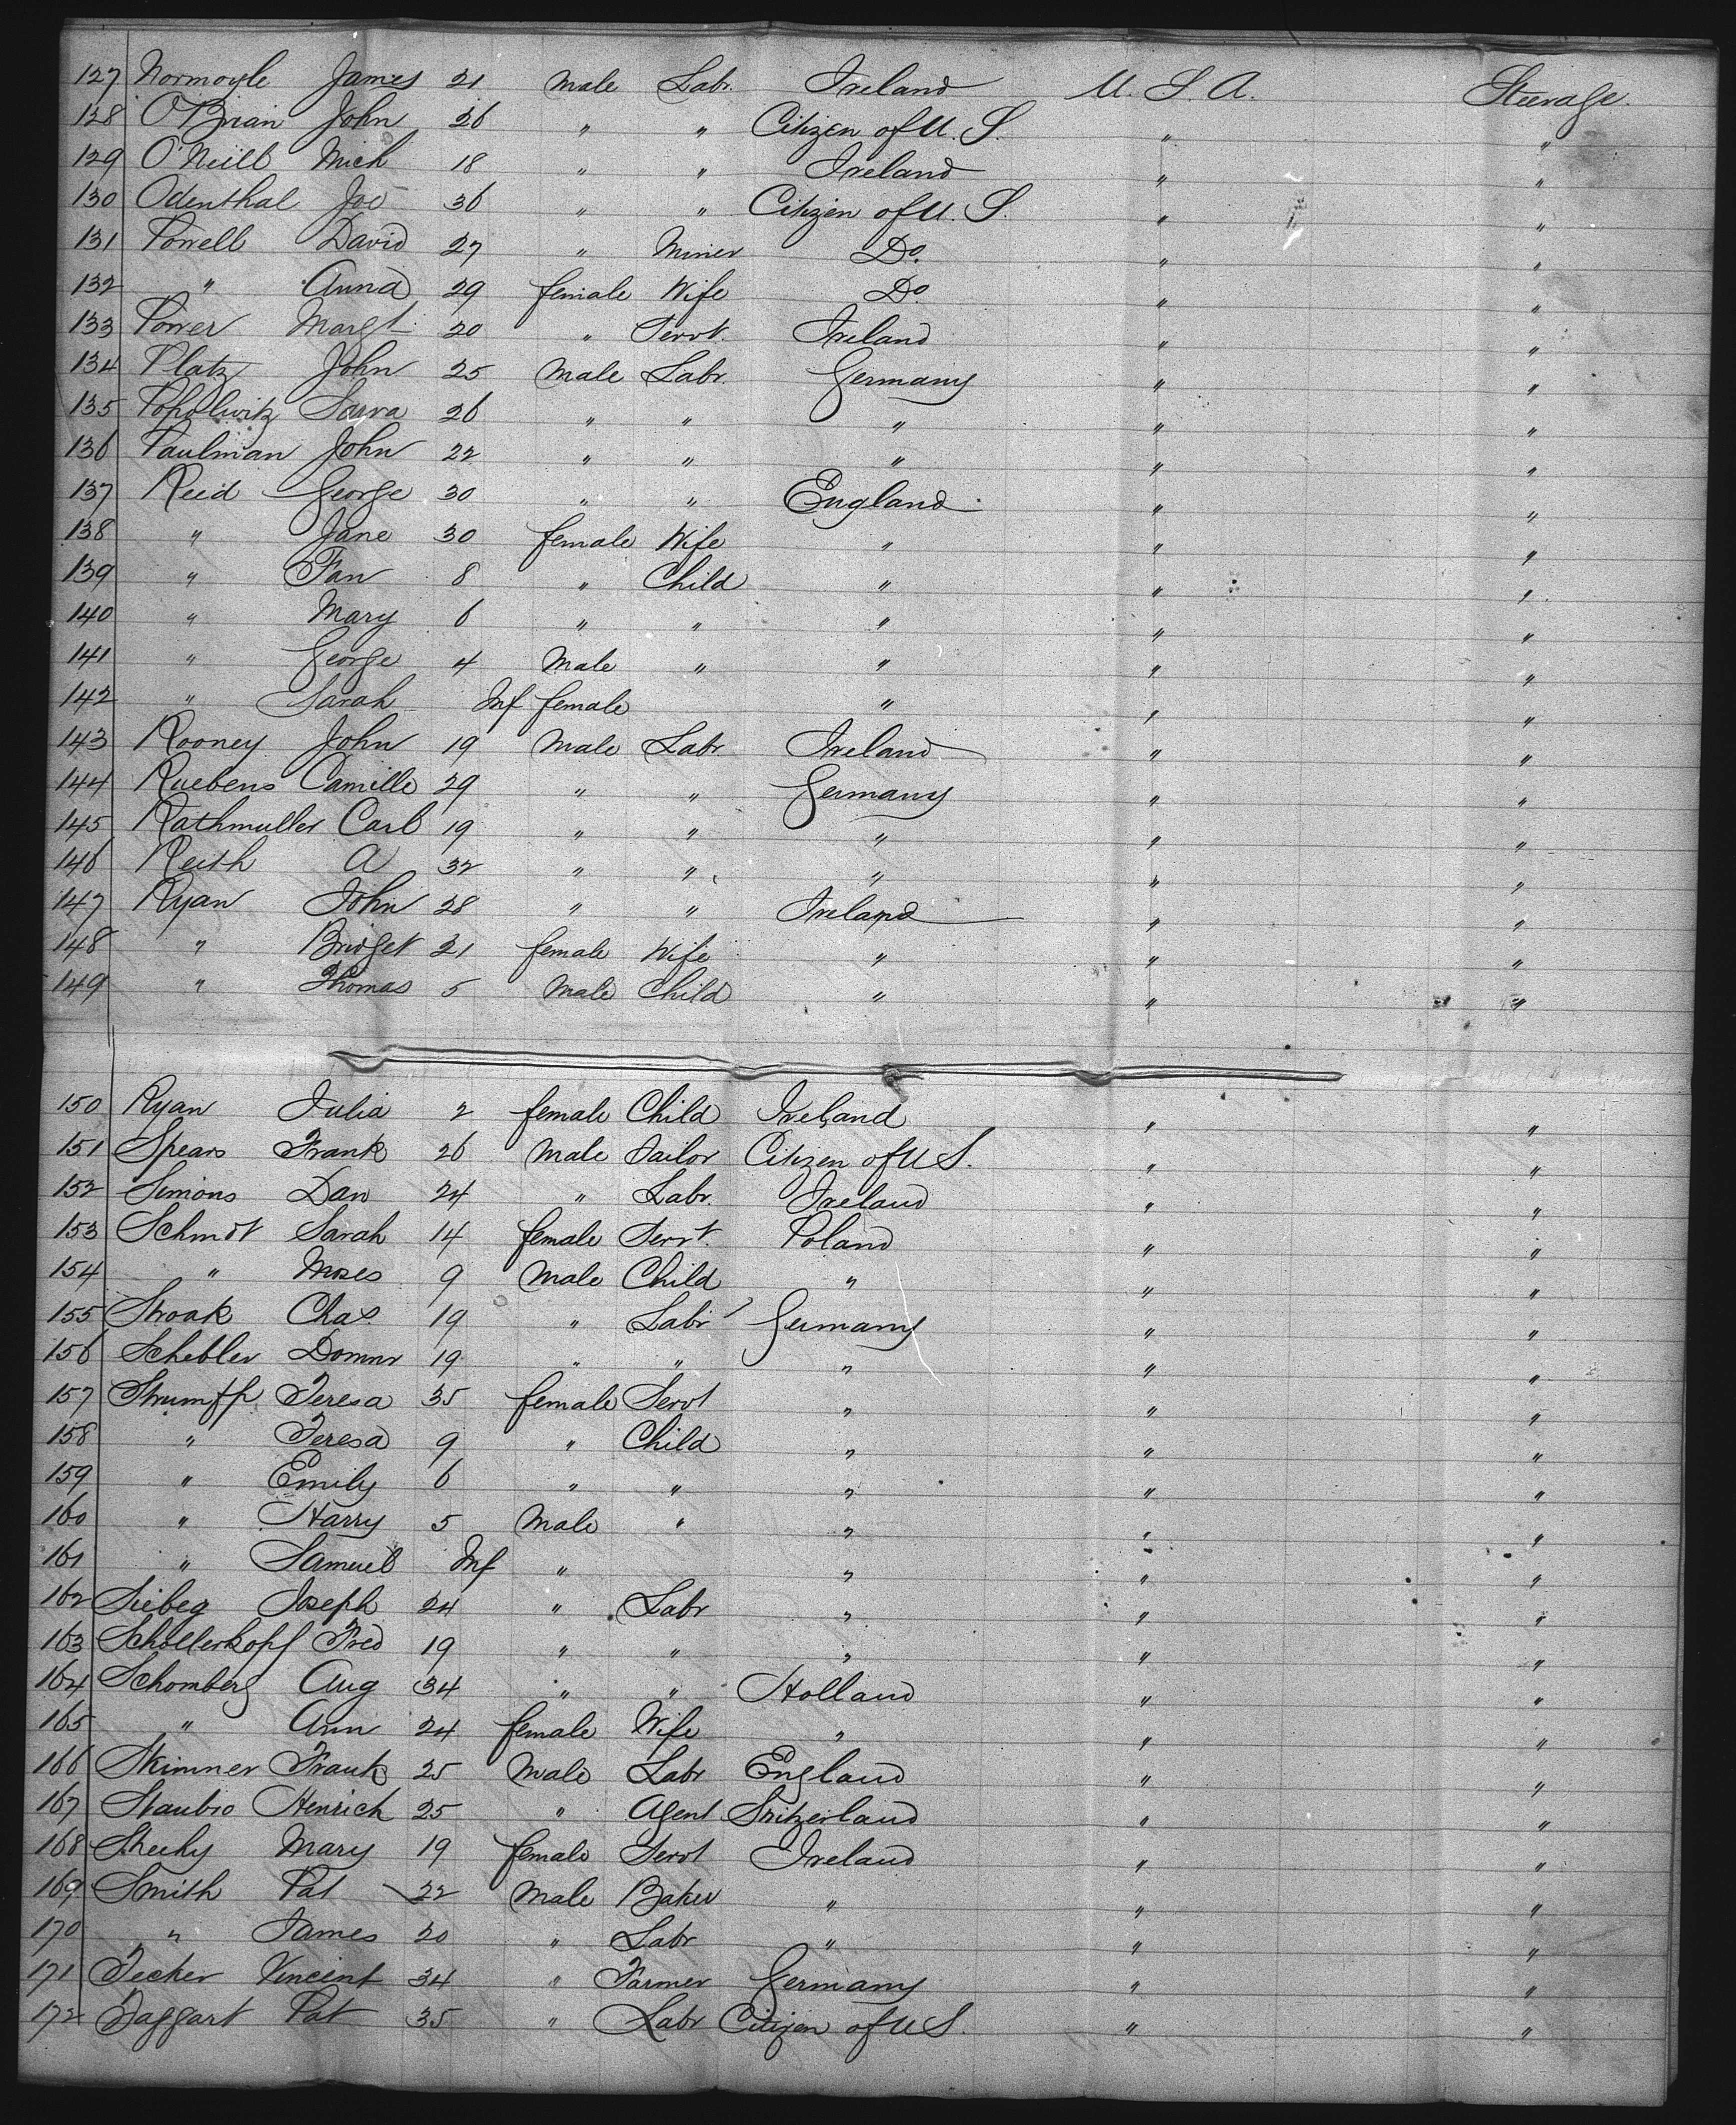 127 Normoyle James 21 male Labr. Ireland U. S. A. Steerage.
128 O'Brian John 26 " " Citizen of U. S. " "
129 O'Neill Mich 18 " " Ireland " "
130 Odenthal Joe 36 " " Citizen of U. S. " "
131 Powell David 27 " Miner Do. " "
132 " Anna 29 female Wife Do " "
133 Power Margt. 20 " Servt. Ireland " "
134 Platz John 25 male Labr. Germany " "
135 Popolwitz Sarva 26 " " " " "
136 Paulman John 22 " " " " "
137 Reid George 30 " " England " "
138 " Jane 30 female Wife " " "
139 " Fan 8 " Child " " "
140 " Mary 6 " " " " "
141 " George 4 Male " " " "
142 " Sarah Inf female " " "
143 Rooney John 19 male Labr. Ireland " "
144 Ruebens Camille 29 " " Germany " "
145 Rathmuller Carl 19 " " " " "
146 Reith A 32 " " " " "
147 Ryan John 28 " " Ireland " "
148 " Bridget 21 female Wife " " "
149 " Thomas 5 Male Child " " "
150 Ryan Julia 2 female Child Ireland " "
151 Spears Frank 26 male Tailor Citizen of U S. " "
152 Simons Dan 24 " Labr. Ireland " "
153 Schmdt Sarah 14 female Servt. Poland " "
154 " Moses 9 male Child " " "
155 Stroak Chas. 19 " Labr Germany " "
156 Schebler Domnr 19 " " " " "
157 Strumfp Teresa 35 female Servt " " "
158 " Teresa 9 " Child " " "
159 " Emily 6 " " " " "
160 " Harry 5 male " " " "
161 " Samuel Inf " " " "
162 Siebeg Joseph 24 " Labr " " "
163 Schollerkopf Fred 19 " " " " "
164 Schomberg Aug 34 " " Holland " "
165 " Ann 24 female Wife " " "
166 Skinner Frank 25 male Labr England " "
167 Staubro Henrich 25 " Agent Switzerland " "
168 Sheehy Mary 19 female Servt Ireland " "
169 Smith Pat 22 male Baker " " "
170 " James 20 " Labr " " "
171 Tecker Vincent 34 " Farmer Germany " "
172 Taggart Pat 35 " Labr Citizen of U S. " "